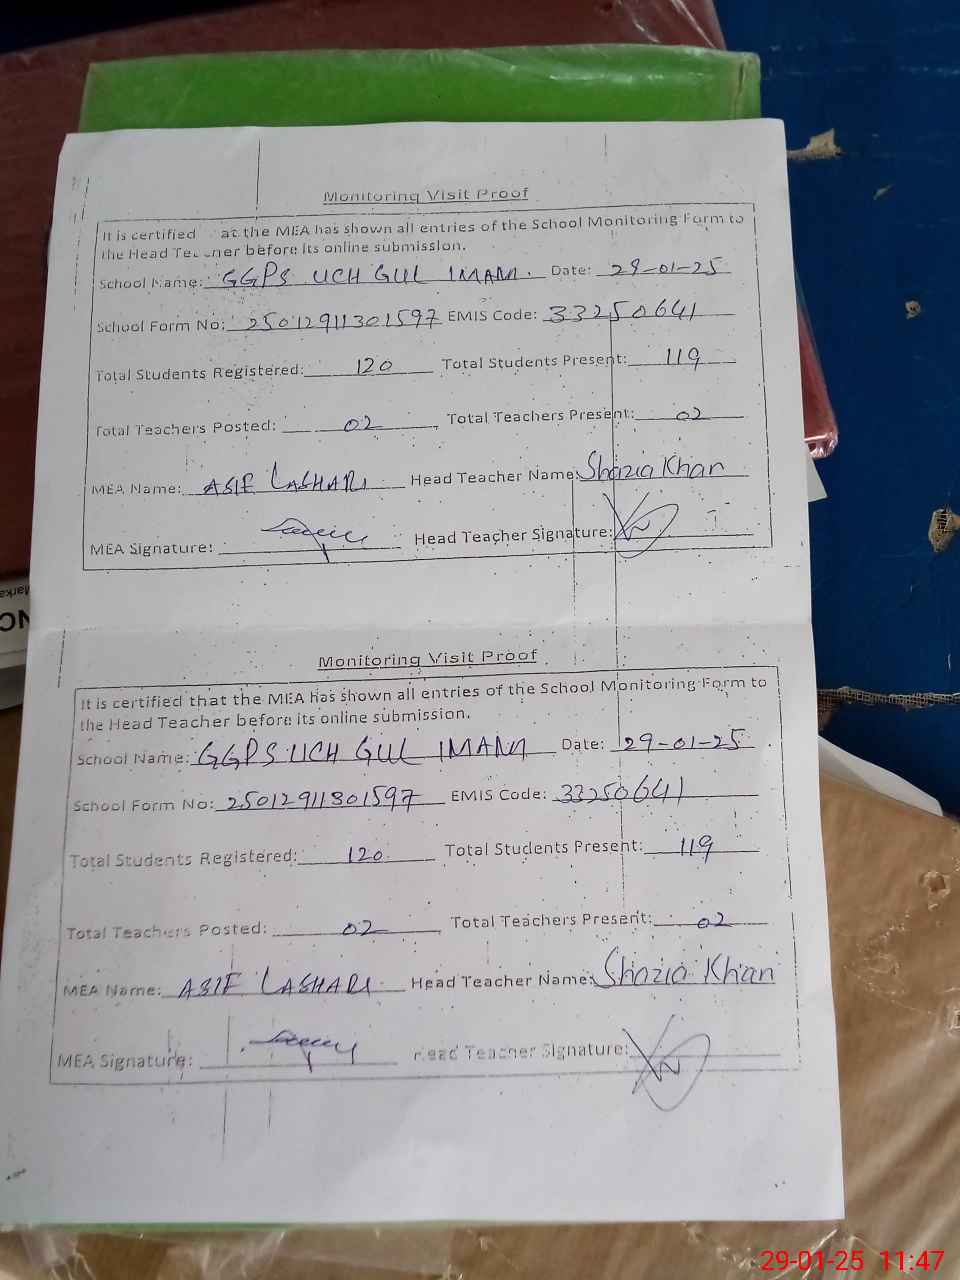 Monitoring Visit Proof
It is certified at the MEA has shown all entries of the School Monitoring Form to
the Head before its online submission.
School Name: GGPS UCH GUL IMAM. Date: 29-01-25
School Form No: 25012911301597 EMIS Code: 33250641
Total Students Registered: 120 Total Students Present: 119
Total Teachers Posted: 02 Total Teachers Present: 02
MEA Name: ASIF LASHARI Head Teacher Name: Shazia Khan
MEA Signature: Head Teacher Signature:
Monitoring Visit Proof
It is certified that the MEA has shown all entries of the School Monitoring Form to
the Head Teacher before its online submission.
School Name: GGPS UCH GUL IMAM Date: 29-01-25
School Form No: 25012911301597 EMIS Code: 33250641
Total Students Registered: 120 Total Students Present: 119
Total Teachers Posted: 02 Total Teachers Present: 02
MEA Name: ASIF LASHARI Head Teacher Name: Shazia Khan
MEA Signature: Head Teacher Signature:
29-01-25 11:47